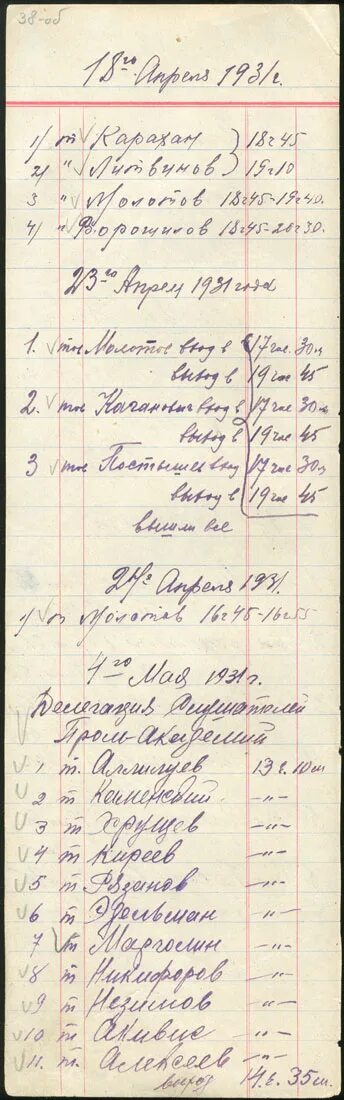 38-об
18го Апреля 1931г.
1/ т Карахан } 18ч45
2/ " Литвинов } 19ч10
3 " Молотов 18ч45-19ч40.
4/ " Ворошилов 18ч45-20ч30.
23го Апрел 1931 года
1. тов Молотов вход в 17 час. 30м
выход в 19 час 45
2. тов Каганович вход в 17 час 30м
выход в 19 час 45
3 тов Постышев вход 17 час 30м
выход в 19 час 45
вышли все
27го Апреля 1931.
1/ т Молотов 16ч45-16ч55
4го Мая 1931г.
Делегация Слушателей
Пром-Академий
1 т. Аллилуев 13 ч. 10м
2 т Каменский -"-
3 т Хрущев -"-
4 т Киреев -"-
5 т Рязанов -"-
6 т Эдельман -"-
7 т Марголин -"-
8 т Никифоров -"-
9 т Незимов -"-
10 т Акивис -"-
11. т. Алексеев -"-
выход 14 ч. 35м.